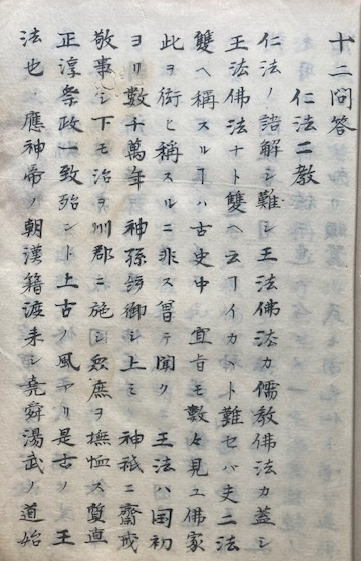 十二問答
仁法二教
仁法ノ諸解シ難シ王法佛法カ儒教佛法カ蓋シ
王法佛法ナト雙ヘ云ヿイカヽト難セバ史二法
雙ヘ稱スルヿハ古史中宣旨モ數々見ユ佛家
此ヲ衒ヒ稱スルニ非ス曽テ聞ク王法ハ国初
ヨリ數千萬年神孫統御シ上ミ神祇ニ齋戒
敬事シ下モ治ヲ州郡ニ施シ衆庶ヲ撫恤ス質直
正淳祭政一致殆ント上古ノ風アリ是古ノ王
法也應神帝ノ朝漢籍渡来シ堯舜湯武ノ道始